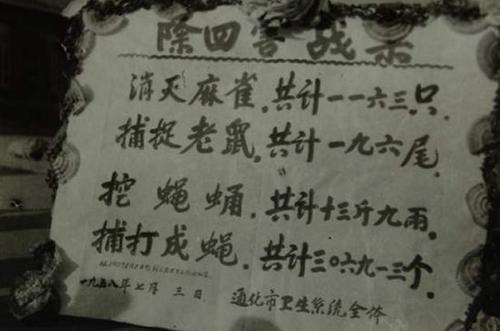 除四害战果
消灭麻雀，共计一一六三只.
捕捉老鼠，共计一九六尾.
挖蝇蛹，共计十三斤九両.
捕打成蝇，共计三〇六九一三个.
一九五八年七月三日 通化市卫生系统全体